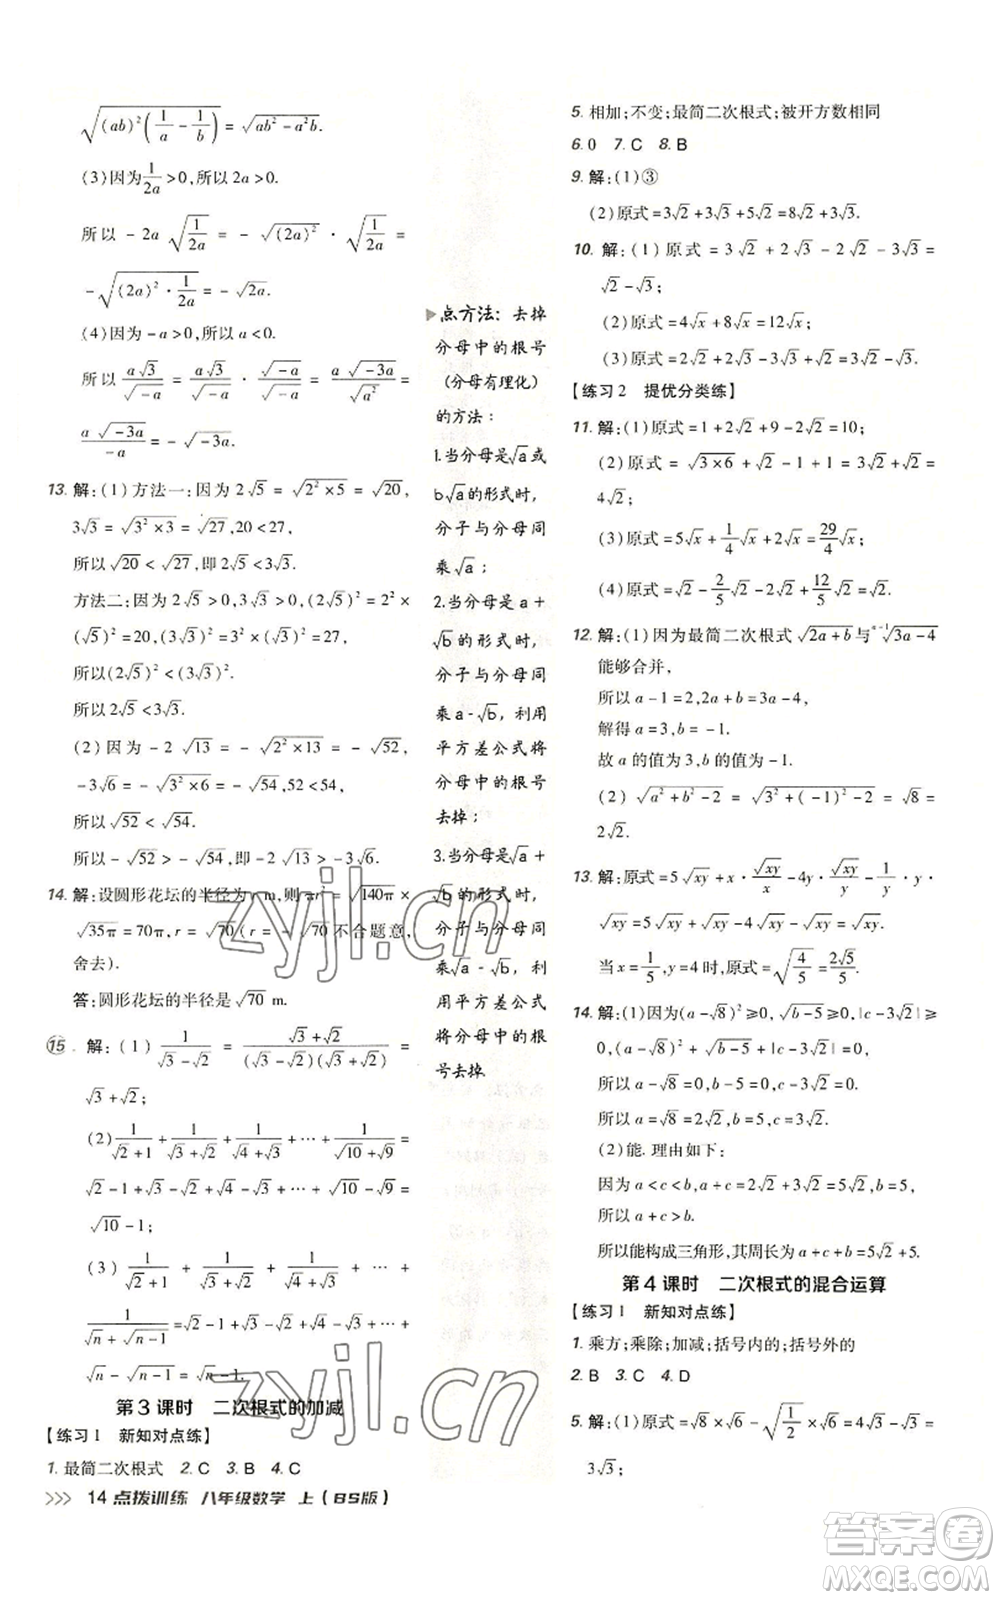 √((ab)²(1/a − 1/b)) = √(ab² − a²b).
(3)因为1/(2a) > 0,所以 2a > 0.
所以 −2a √(1/(2a)) = −√((2a)²) · √(1/(2a)) =
−√((2a)² · 1/(2a)) = −√(2a).
(4)因为 −a > 0,所以 a < 0.
所以 a√3/√(−a) = a√3/√(−a) · √(−a)/√(−a) = a√(−3a)/√(a²) =
a√(−3a)/(−a) = −√(−3a).
13. 解:(1)方法一:因为 2√5 = √(2² × 5) = √20,
3√3 = √(3² × 3) = √27,20 < 27,
所以 √20 < √27,即 2√5 < 3√3.
方法二:因为 2√5 > 0,3√3 > 0,(2√5)² = 2² ×
(√5)² = 20,(3√3)² = 3² × (√3)² = 27,
所以(2√5)² < (3√3)².
所以 2√5 < 3√3.
(2)因为 −2√13 = −√(2² × 13) = −√52,
−3√6 = −√(3² × 6) = −√54,52 < 54,
所以 √52 < √54.
所以 −√52 > −√54,即 −2√13 > −3√6.
14. 解:设圆形花坛的半径为 m,则 πr² = √(140π) ×
√(35π) = 70π,r = √70(r = −√70 不合题意,
舍去).
答:圆形花坛的半径是 √70 m.
15. 解:(1) 1/(√3 − √2) = (√3 + √2)/((√3 − √2)(√3 + √2)) =
√3 + √2;
(2) 1/(√2 + 1) + 1/(√3 + √2) + 1/(√4 + √3) + … + 1/(√10 + √9) =
√2 − 1 + √3 − √2 + √4 − √3 + … + √10 − √9 =
√10 − 1;
(3) 1/(√2 + 1) + 1/(√3 + √2) + 1/(√4 + √3) + … +
1/(√n + √(n − 1)) = √2 − 1 + √3 − √2 + √4 − √3 + … +
√n − √(n − 1) = √n − 1.
第3课时 二次根式的加减
【练习1 新知对点练】
1. 最简二次根式 2. C 3. B 4. C
>>> 14 点拨训练 八年级数学 上(BS版)
点方法:去掉
分母中的根号
(分母有理化)
的方法:
1.当分母是√a或
b√a的形式时,
分子与分母同
乘√a;
2.当分母是a+
√b的形式时,
分子与分母同
乘a-√b,利用
平方差公式将
分母中的根号
去掉;
3.当分母是√a+
√b的形式时,
分子与分母同
乘√a-√b,利
用平方差公式
将分母中的根
号去掉.
5. 相加;不变;最简二次根式;被开方数相同
6. 0 7. C 8. B
9. 解:(1)③
(2)原式 = 3√2 + 3√3 + 5√2 = 8√2 + 3√3.
10. 解:(1)原式 = 3√2 + 2√3 − 2√2 − 3√3 =
√2 − √3;
(2)原式 = 4√x + 8√x = 12√x;
(3)原式 = 2√2 + 2√3 − √3 = 2√2 + √3.
【练习2 提优分类练】
11. 解:(1)原式 = 1 + 2√2 + 9 − 2√2 = 10;
(2)原式 = √(3 × 6) + √2 − 1 + 1 = 3√2 + √2 =
4√2;
(3)原式 = 5√x + 1/4 √x + 2√x = 29/4 √x;
(4)原式 = √2 − 2/5 √2 − 2√2 + 12/5 √2 = √2.
12. 解:(1)因为最简二次根式 √(2a + b) 与 ᵃ⁻¹√(3a − 4)
能够合并,
所以 a − 1 = 2,2a + b = 3a − 4,
解得 a = 3,b = −1.
故 a 的值为 3,b 的值为 −1.
(2) √(a² + b² − 2) = √(3² + (−1)² − 2) = √8 =
2√2.
13. 解:原式 = 5√(xy) + x · √(xy)/x − 4y · √(xy)/y − 1/y · y ·
√(xy) = 5√(xy) + √(xy) − 4√(xy) − √(xy) = √(xy).
当 x = 1/5,y = 4 时,原式 = √(4/5) = 2√5/5.
14. 解:(1)因为(a − √8)² ≥ 0,√(b − 5) ≥ 0,|c − 3√2| ≥
0,(a − √8)² + √(b − 5) + |c − 3√2| = 0,
所以 a − √8 = 0,b − 5 = 0,c − 3√2 = 0.
所以 a = √8 = 2√2,b = 5,c = 3√2.
(2)能. 理由如下:
因为 a < c < b,a + c = 2√2 + 3√2 = 5√2,b = 5,
所以 a + c > b.
所以能构成三角形,其周长为 a + c + b = 5√2 + 5.
第4课时 二次根式的混合运算
【练习1 新知对点练】
1. 乘方;乘除;加减;括号内的;括号外的
2. B 3. C 4. D
5. 解:(1)原式 = √8 × √6 − √(1/2 × 6) = 4√3 − √3 =
3√3;
zyjl.cn
zyjl.cn
答案圈
MXQE.COM